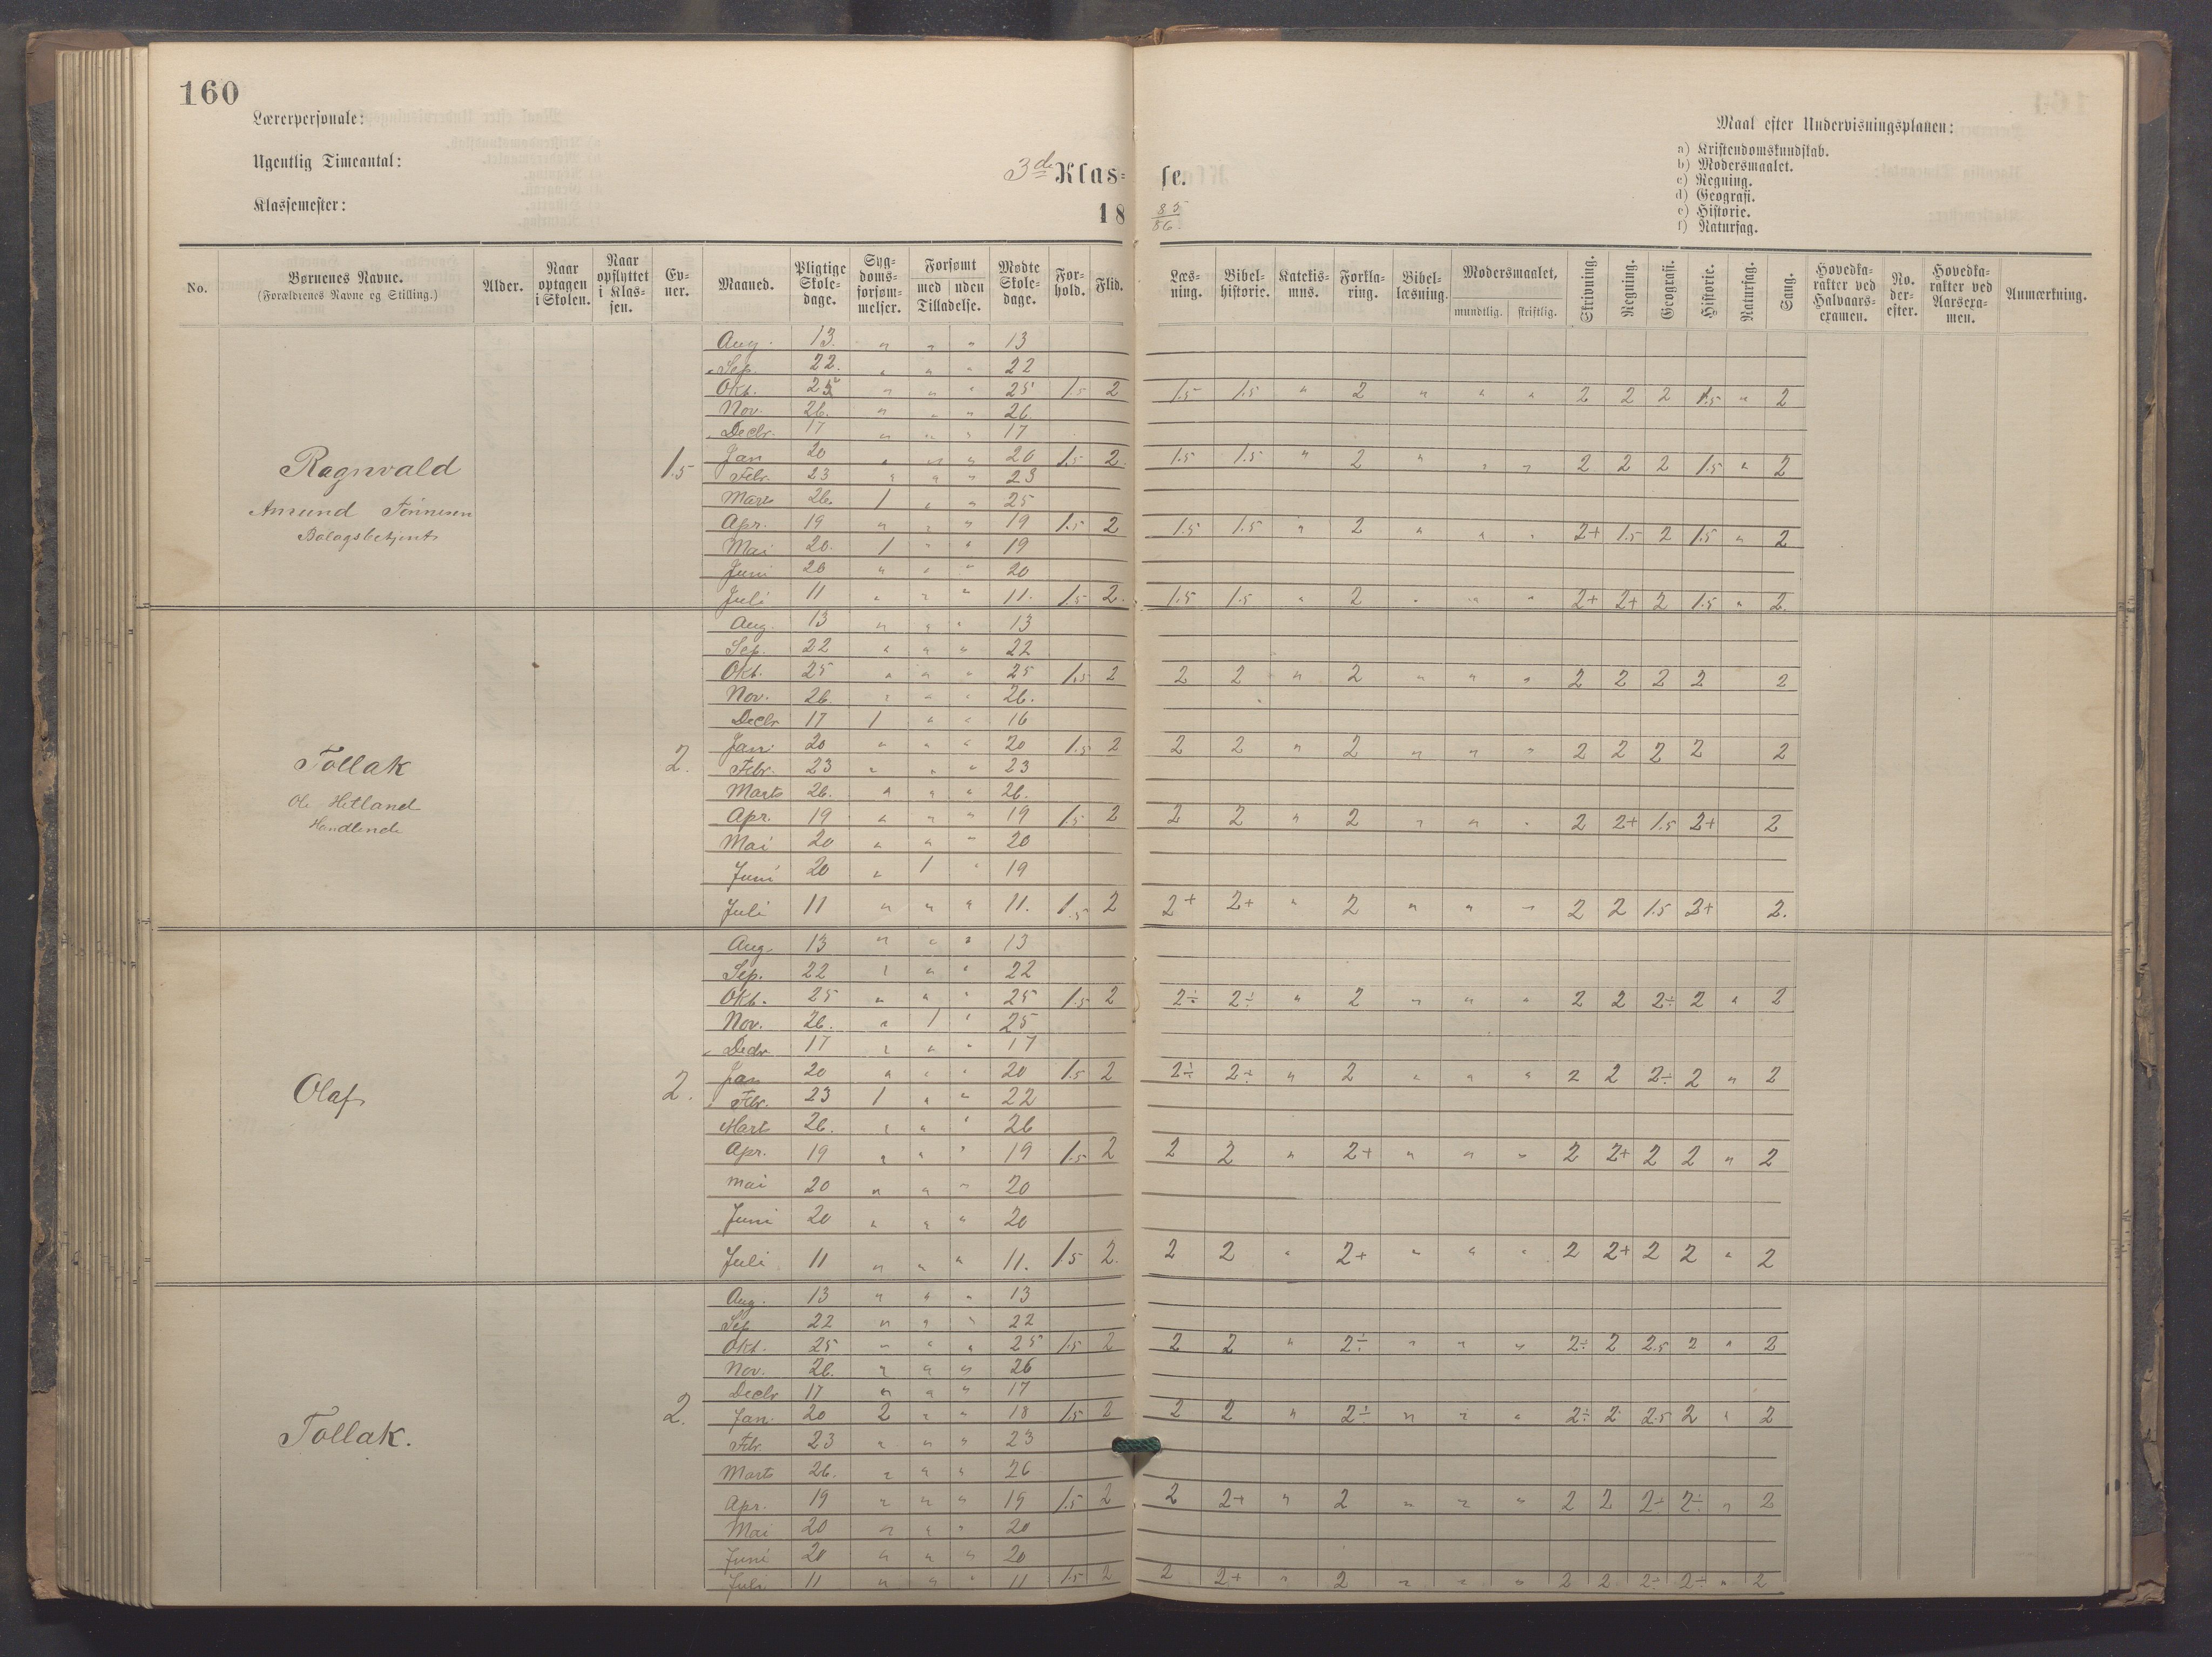 160
Lærerpersonale:
Ugentlig Timeantal:
Klassemester:
3de Klas= se.
18 85/86
Maal efter Undervisningsplanen:
a) Kristendomskundskab.
b) Modersmaalet.
c) Regning.
d) Geografi.
e) Historie.
f) Naturfag.
No. Børnenes Navne. (Forældrenes Navne og Stilling.) Alder. Naar optagen i Skolen. Naar opflyttet i Klas-sen. Ev-ner. Maaned. Pligtige Skole-dage. Syg-doms-forsøm-melser. Forsømt med uden Tilladelse. Mødte Skole-dage. For-hold. Flid. Læs-ning. Bibel-historie. Katekis-mus. Forkla-ring. Bibel-læsning. Modersmaalet, mundtlig. skriftlig. Skrivning. Regning. Geografi. Historie. Naturfag. Sang. Hovedka-rakter ved Halvaars-examen. No. der-efter. Hovedka-rakter ved Aarsexa-men. Anmærkning.
Aug. 13. " " " 13
Sep. 22. " " " 22
Okt. 25 " " " 25 1.5 2 1.5 1.5 " 2 " " " 2 2 2 1.5 " 2
Nov. 26. " " " 26.
Decbr. 17 " " " 17
Jan 20 " " " 20 1.5 2. 1.5 1.5 " 2 " " " 2 2 2 1.5 " 2
Ragnvald 1.5
Febr. 23 " " " 23
Marts 26. 1 " " 25
Amund Tønnesen
Apr. 19 " " " 19 1.5 2 1.5 1.5 " 2 " " " 2+ 1.5 2 1.5 " 2
Bølagsbetjent
Mai 20. 1 " " 19
Juni 20 " " " 20
Juli 11 " " " 11. 1.5 2. 1.5 1.5 " 2 " " " 2+ 2+ 2 1.5 " 2.
Aug. 13 " " " 13
Sep. 22 " " " 22
Okt. 25 " " " 25 1.5 2 2 2 " 2 " " " 2 2 2 2 2
Nov. 26. " " " 26.
Decbr 17 1 " " 16
Jan. 20 " " " 20 1.5 2 2 2 " 2 " " " 2 2 2 2 2
Tollak 2.
Febr. 23 " " " 23
Marts 26. " " " 26.
Ole Hetland
Apr. 19 " " " 19 1.5 2 2 2 " 2 " " " 2 2+ 1.5 2+ 2
Handlende
Mai 20 " " " 20
Juni 20 " 1 " 19
Juli 11 " " " 11. 1.5 2 2+ 2+ " 2 " " " 2 2 1.5 2+ 2.
Aug. 13 " " " 13
Sep. 22 " " " 22
Okt. 25 " " " 25 1.5 2 2÷ 2÷ " 2 " " " 2 2 2÷ 2 " 2
Nov. 26. " 1 " 25
Decbr 17 " " " 17
Jan 20 " " " 20 1.5 2 2÷ 2÷ " 2 " " " 2 2 2÷ 2 " 2
Olaf 2.
Febr. 23 1 " " 22
Mart 26. " " " 26
Apr. 19 " " " 19 1.5 2 2 2 " 2+ " " " 2 2+ 2 2 " 2
Mai 20 " " " 20
Juni 20 " " " 20
Juli 11 " " " 11. 1.5 2. 2 2 " 2+ " " " 2 2+ 2 2 " 2
Aug. 13 " " " 13
Sep 22 " " " 22
Okt. 25 " " " 25 1.5 2 2 2 " 2÷ " " " 2÷ 2 2.5 2 " 2
Nov. 26. " " " 26
Decbr 17 " " " 17
Jan. 20 2 " " 18 1.5 2 2 2 " 2÷ " " " 2÷ 2 2.5 2 " 2
Tollak. 2.
Febr. 23 " " " 23
Marts 26. " " " 26
Apr. 19 " " " 19 1.5 2 2 2+ " 2 " " " 2 2 2÷ 2÷ " 2
Mai 20 " " " 20
Juni 20 " " " 20
Juli 11 " " " 11 1.5 2 2 2+ " 2 " " " 2 2 2÷ 2÷ " 2